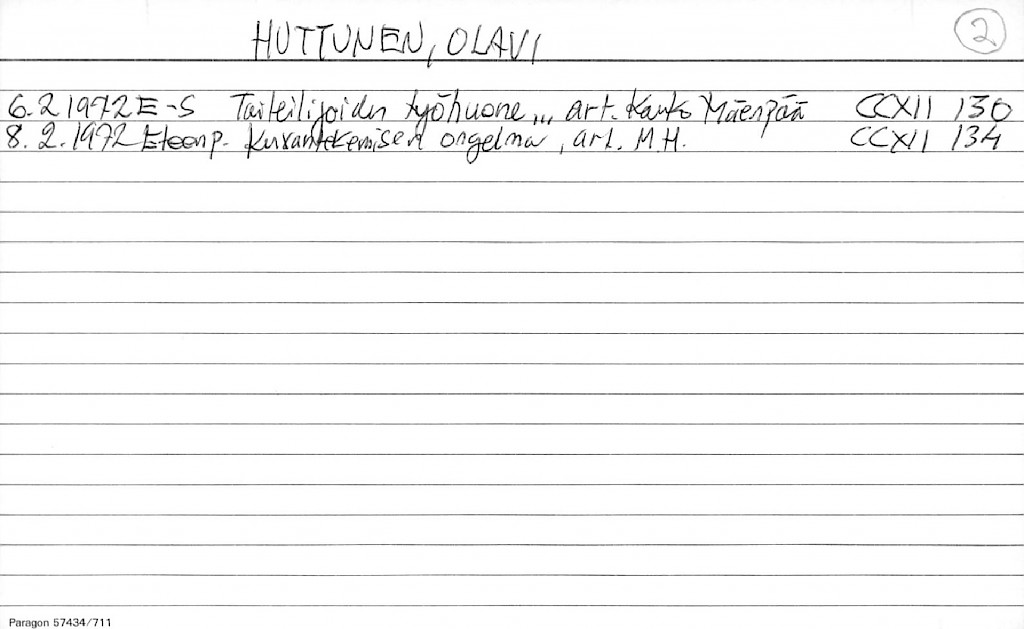 HUTTUNEN, OLAVI
2
6.2 1972 E-S Taiteilijoiden työhuone... art. Kauko Mäenpää CCXII 130
8.2.1972 Eteenp. Kuvantekemisen ongelma, art. M.H. CCXII 134
Paragon 57434/711